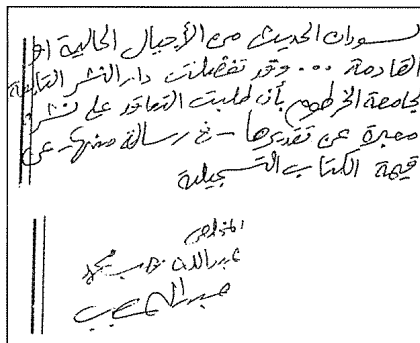 لسودان الحديث من الأجيال الحالية او
القادمة ... وقد تفضلت دار النشر التابعة
لجامعة الخرطوم بأن طلبت التعاقد على نشر
معبرة عن تقديرها - في رسالة منها - عن
قيمة الكتاب التسجيلية
المخلص
عبدالله رجب محمد